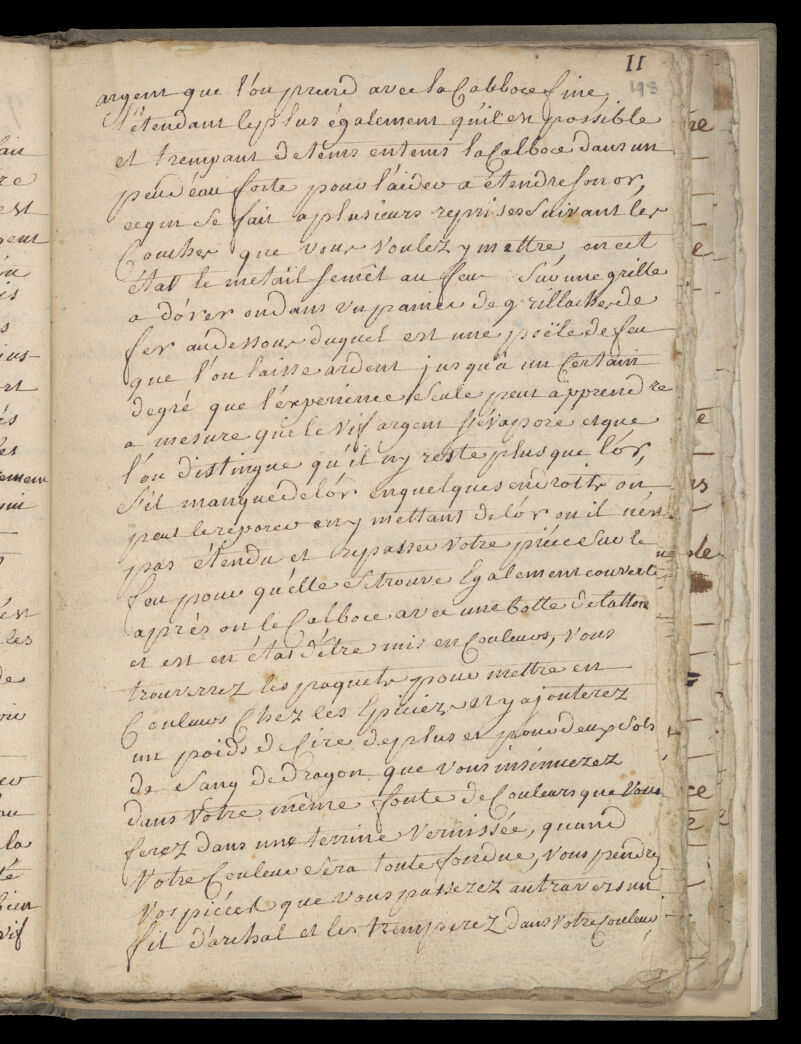 11
193
argent que l'on prend avec la Calboce fine,
l'étendant le plus également qu'il en possible
et trempant de tems en tems la Calboce dans un
peu d'eau forte pour l'aider a étendre son or,
ce qui se fait a plusieurs reprises Suivant les
Couches que vous voulez y mettre, en cet
état le metail se met au feu Sur une grille
a dórer ou dans un panier de grillache de
fer au dessous duquel est une poële de feu
que l'on laisse ardent jusqu'a un Certain
degré que l'éxperience Seule peut äpprendre
a mesure que le vif argent s'évapore et que
l'on distingue qu'il n'y reste plus que l'ór,
S'il manque de lór en quelques endroits on
peut le reparer en y mettant de lór ou il n'est
pas étendu et repasser Votre piéce Sur le
feu pour qu'elle Se trouve Egalement couverte
aprés on le Calboce avec une botte de latton
et est en état d'étre mis en Couleurs, Vous
trouverrez les paquets pour mettre en
Couleurs Chez les Epiciers et y ajouterez
un poids de Cire de plus et pour deux Sols
de Sang de Dragon que vous insinuezez
dans Votre même fonte de Couleurs que Vous
ferez dans une terrine Vernissée, quand
Votre Couleur Sera toute fondue, Vous pendrez
Vos piéces que vous passerez au travers un
fil d'archal et les tremperez dans Votre Couleur